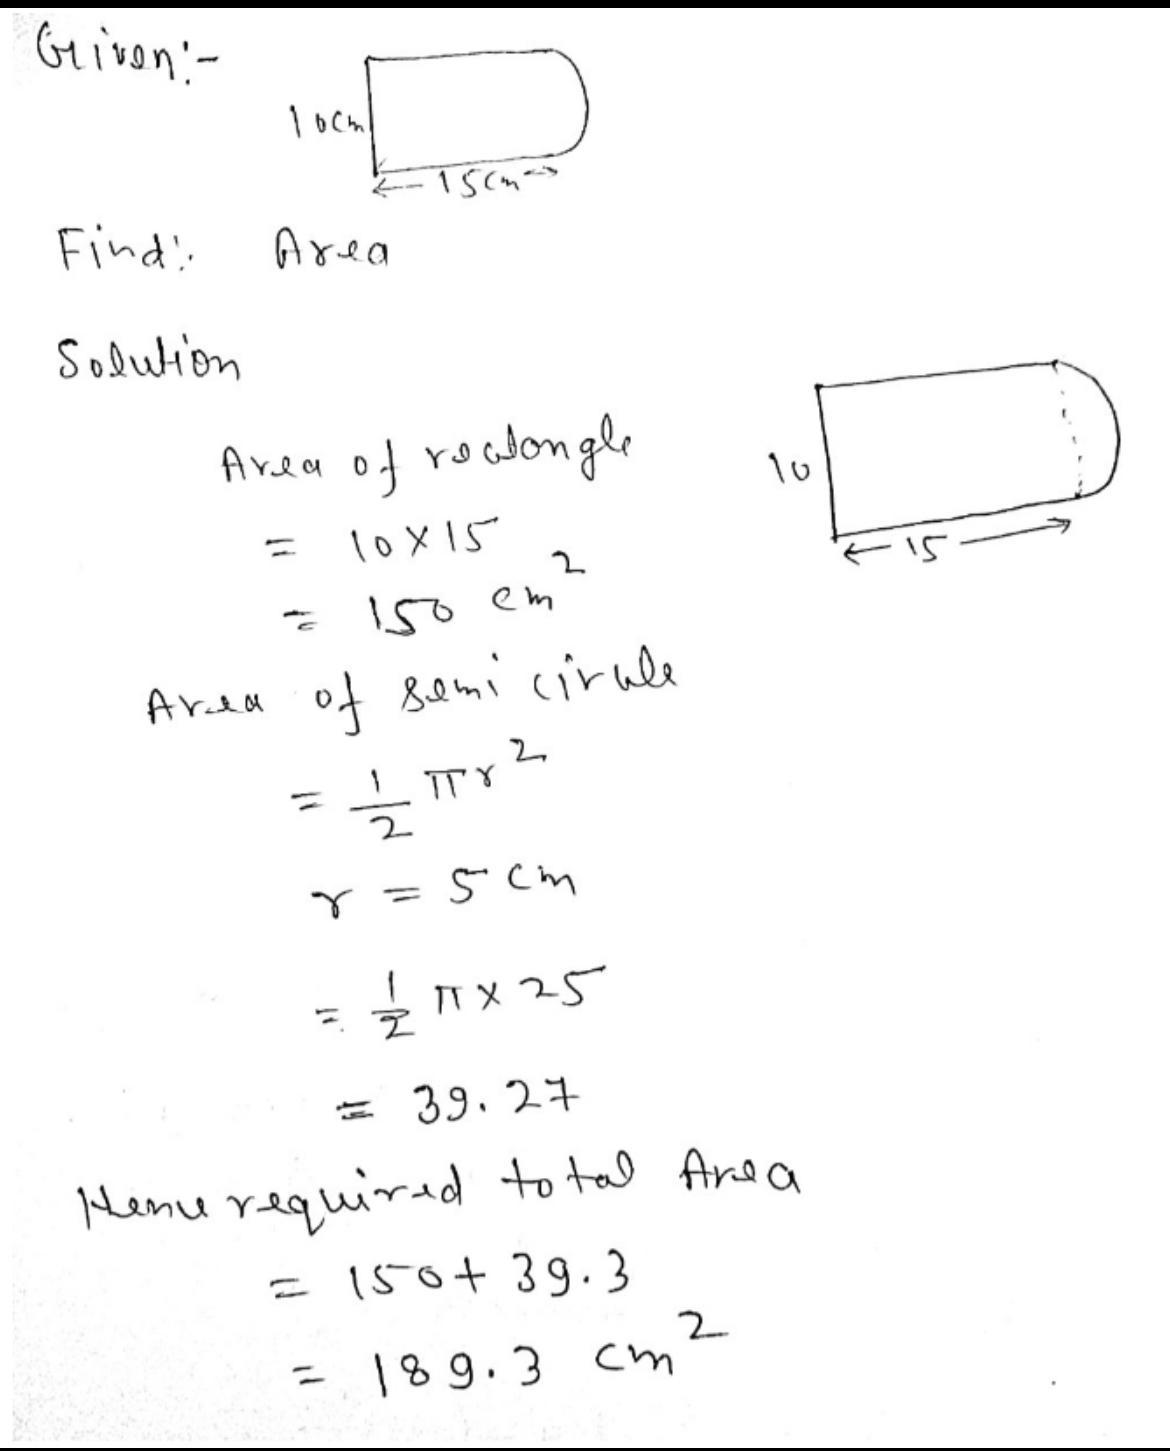 Given:-
10cm
15cm
Find: Area
Solution
Area of rectangle
= 10 × 15
= 150 cm²
10
15
Area of semi circle
= 1/2 πr²
r = 5 cm
= 1/2 π × 25
= 39.27
Hence required total Area
= 150 + 39.3
= 189.3 cm²